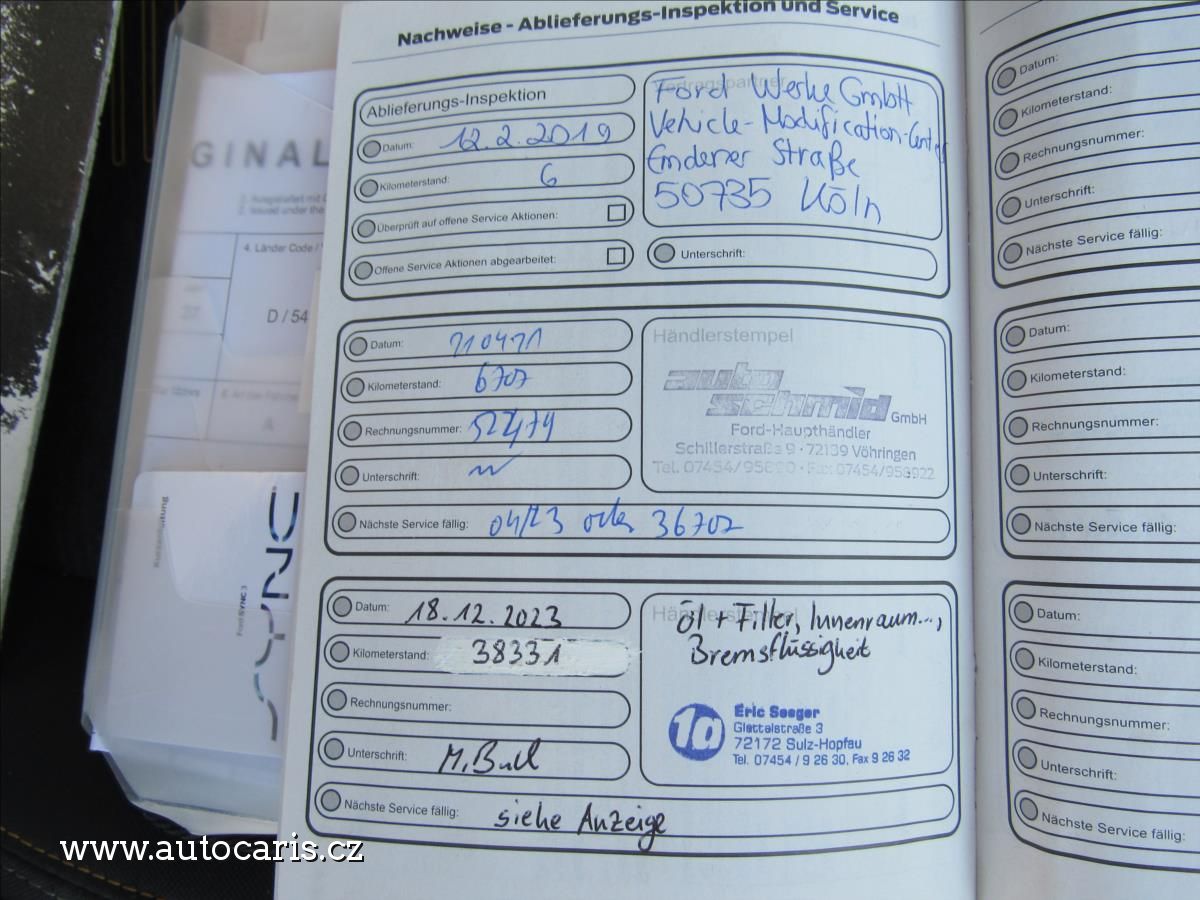 Nachweise - Ablieferungs-Inspektion und Service
Ablieferungs-Inspektion
Datum: 12.2.2019
Kilometerstand: 6
Überprüft auf offene Service Aktionen:
Offene Service Aktionen abgearbeitet:
Vertragspartner
Ford Werke GmbH
Vehicle-Modification-Center
Emdener Straße
50735 Köln
Unterschrift:
Datum: 210421
Kilometerstand: 6707
Rechnungsnummer:
Unterschrift:
Nächste Service fällig: 04/23 oder 36707
Händlerstempel
auto
schmid GmbH
Ford-Haupthändler
Schillerstraße 9 · 72189 Vöhringen
Tel. 07454/95 · Fax 07454/958922
Datum: 18.12.2023
Kilometerstand: 38331
Rechnungsnummer:
Unterschrift:
Nächste Service fällig: siehe Anzeige
Händlerstempel
Öl + Filter, Innenraum...,
Bremsflüssigkeit
1a
Eric Seeger
Glattalstraße 3
72172 Sulz-Hopfau
Tel. 07454 / 9 26 30, Fax 9 26 32
Datum:
Kilometerstand:
Rechnungsnummer:
Unterschrift:
Nächste Service fällig:
Datum:
Kilometerstand:
Rechnungsnummer:
Unterschrift:
Nächste Service fällig:
Datum:
Kilometerstand:
Rechnungsnummer:
Unterschrift:
Nächste Service fällig:
GINAL
4. Länder Code /
D / 54
37
A
SYNC
Ford SYNC 3
www.autocaris.cz